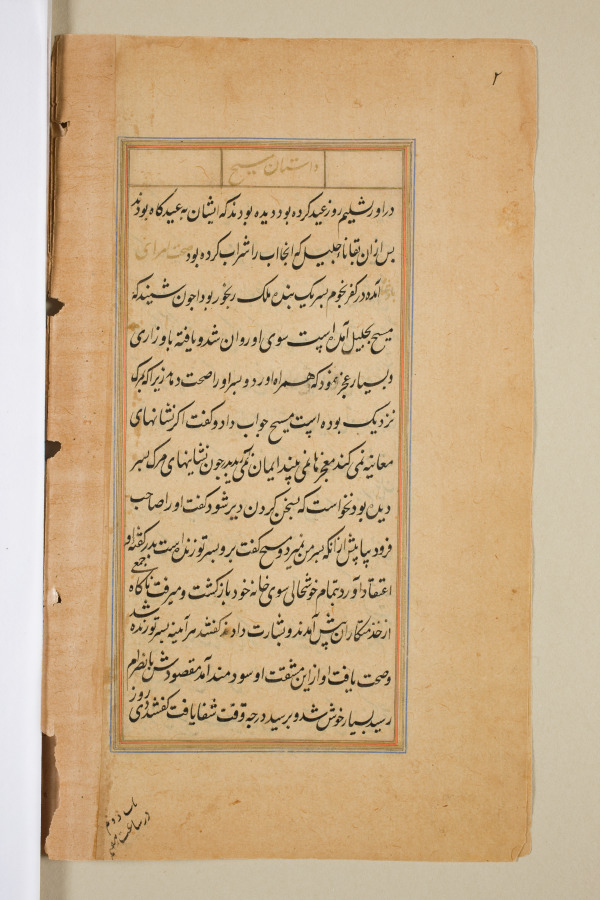 ۲
داستان مسیح
در اورشلیم روز عید کرده بود دیده بودند که ایشان به عید کاه بودند
پس ازان بقانا جلیل که انجا اب را شراب کرده بود
آمده در کفرنحوم پسر یک بنده ملک رنجور بود اجون شنید که
مسیح بجلیل آمده است سوی او روان شد و یافته با و زاری
و بسیار عجز نمود که همراه اورد و پسر او را صحت دهد زیرا که بمرک
نزدیک بوده است مسیح جواب داد و کفت اکر نشانهای
معاینه نمی کنند معجزها نمی بینند ایمان نمی آرید پدر جون نشانیهای مرک پسر
دیده بود نخواست که بسخن کردن دیر شود کفت اورا صاحب
فرود بیا پیش ازانکه پسر من نمیرد و مسیح کفت برو پسر تو زنده است پدر بکفته او
اعتقاد آورد بتمام خوشحالی سوی خانه خود باز کشت و میرفت ناکاه جمعی
از خدمتکاران پیش آمدند و بشارت دادند کفتند هر آینه پسر تو زنده شد
و صحت یافت او ازین مشقت او سودمند آمد مقصودش بانظرام
رسید بسیار خوش شد و پرسید در جه وقت شفا یافت کفتند دی روز
باب دوم
در ساعت هفتم